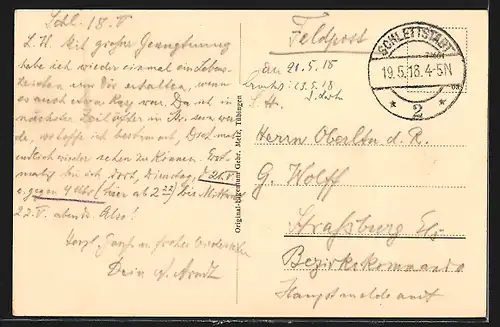 Schl. 18.V
L. H. Mit großer Genugtuung
habe ich wieder einmal ein Lebens-
zeichen von Dir erhalten, wenn
es auch etwas kurz war. Da ich in
nächster Zeit öfter in Str. sein wer-
de, so hoffe ich bestimmt, Dich mal
endlich wieder sehen zu können. Erst-
mals bin ich dort, Dienstag, d. 21.V.
gegen 4 Uhr frei ab 2 bis Mittwoch
22.V. abends. Also!
Herzl. Gruß u. frohes Wiedersehen
Dein Arndt
Original-Eigentum Gebr. Metz, Tübingen
Feldpost
SCHLETTSTADT
19.5.18.4-5N
* 2 *
21.5.18
13.5.18
S. H.
Herrn Oberltn. d. R.
G. Wolff
Straßburg Els
Bezirkskommando
Hauptmeldeamt